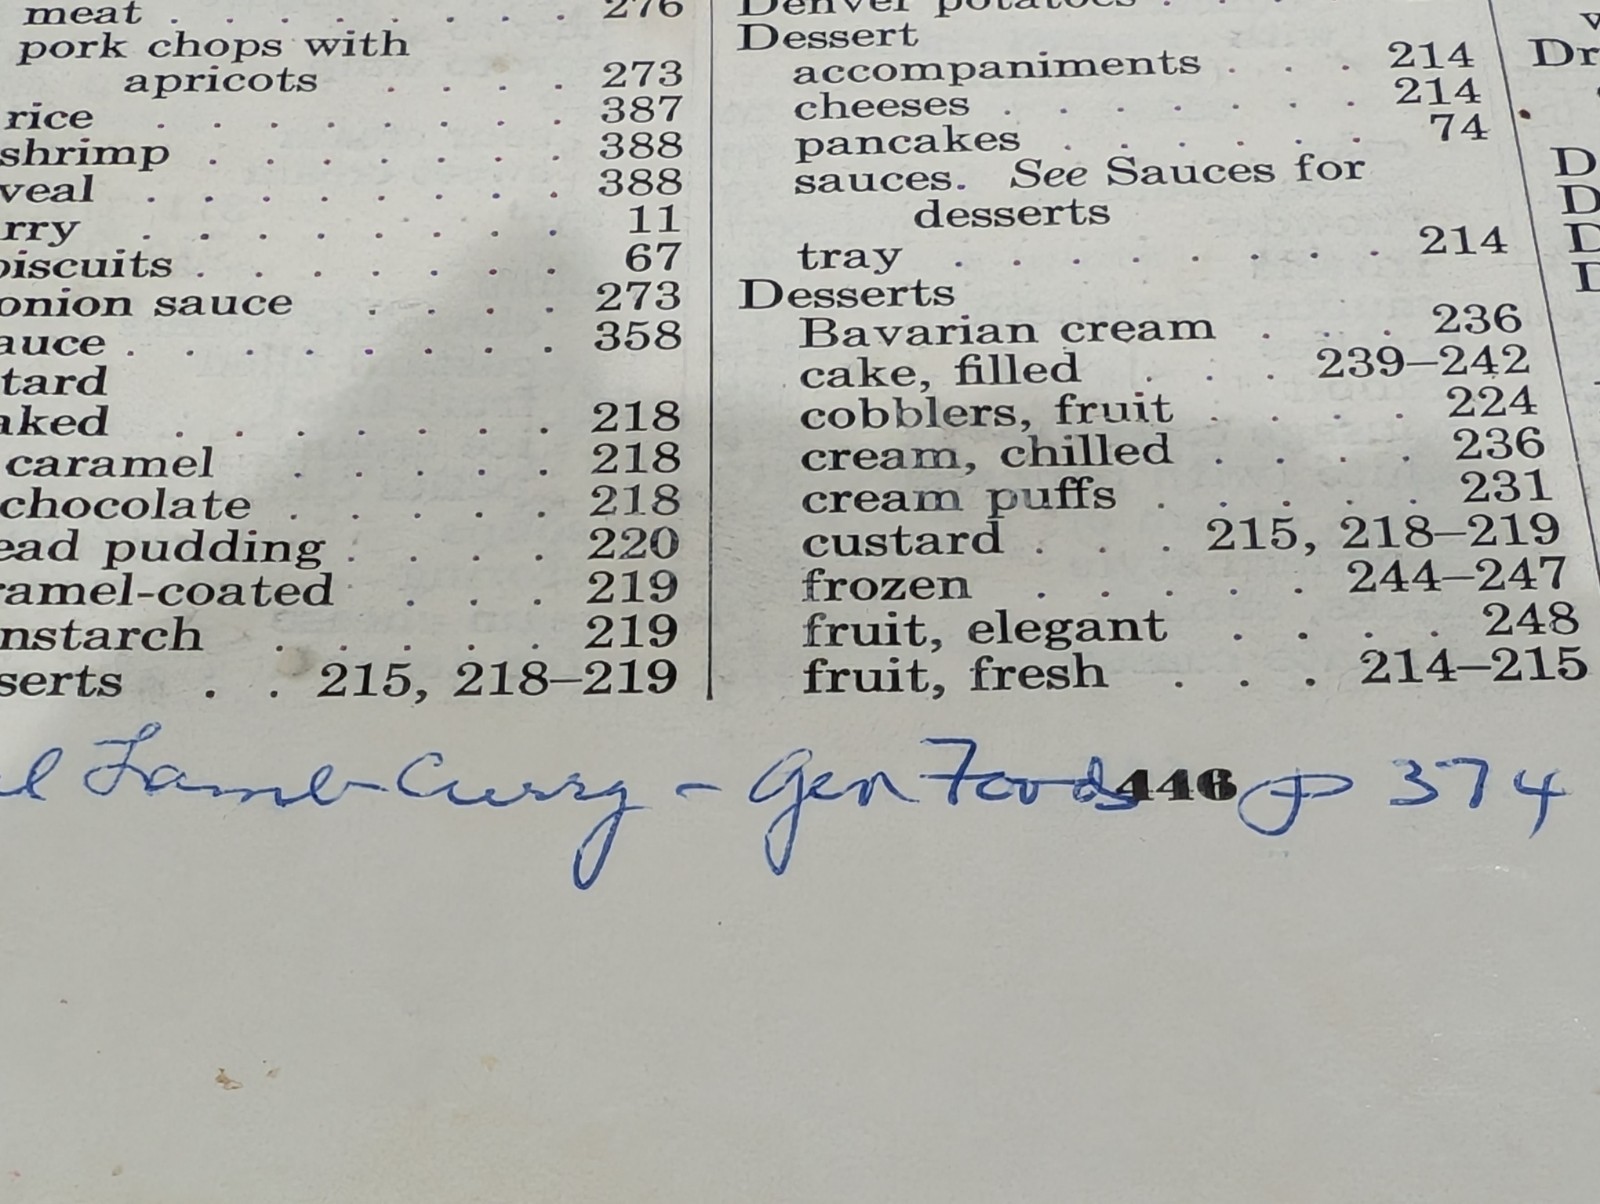 meat . . . . . . . . 276
pork chops with
apricots . . . . 273
rice . . . . . . . . 387
shrimp . . . . . . . 388
veal . . . . . . . . 388
rry . . . . . . . . 11
biscuits . . . . . . . 67
onion sauce . . . . 273
auce . . . . . . . . 358
tard
aked . . . . . . . 218
caramel . . . . . 218
chocolate . . . . . 218
ead pudding . . . . 220
ramel-coated . . . 219
nstarch . . . . . 219
serts . . 215, 218–219
Denver potatoes . . .
Dessert
accompaniments . . . 214
cheeses . . . . . . . 214
pancakes . . . . . . 74
sauces. See Sauces for
desserts
tray . . . . . . . . 214
Desserts
Bavarian cream . . . 236
cake, filled . . . 239–242
cobblers, fruit . . . . 224
cream, chilled . . . . 236
cream puffs . . . . . 231
custard . . . 215, 218–219
frozen . . . . . 244–247
fruit, elegant . . . . 248
fruit, fresh . . . 214–215
Dr
D
D
D
D
Lamb Curry - Gen Foods p 374
446